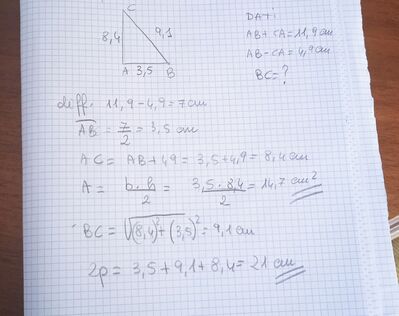 C
8,4
9,1
A 3,5 B
DATI
AB+CA=11,9 cm
AB-CA=4,9 cm
BC=?
diff. 11,9-4,9=7cm
AB = 7/2 = 3,5 cm
AC = AB+4,9 = 3,5+4,9 = 8,4 cm
A = b.h/2 = 3,5.8,4/2 = 14,7 cm²
BC = √(8,4)²+(3,5)² = 9,1 cm
2p = 3,5+9,1+8,4=21 cm